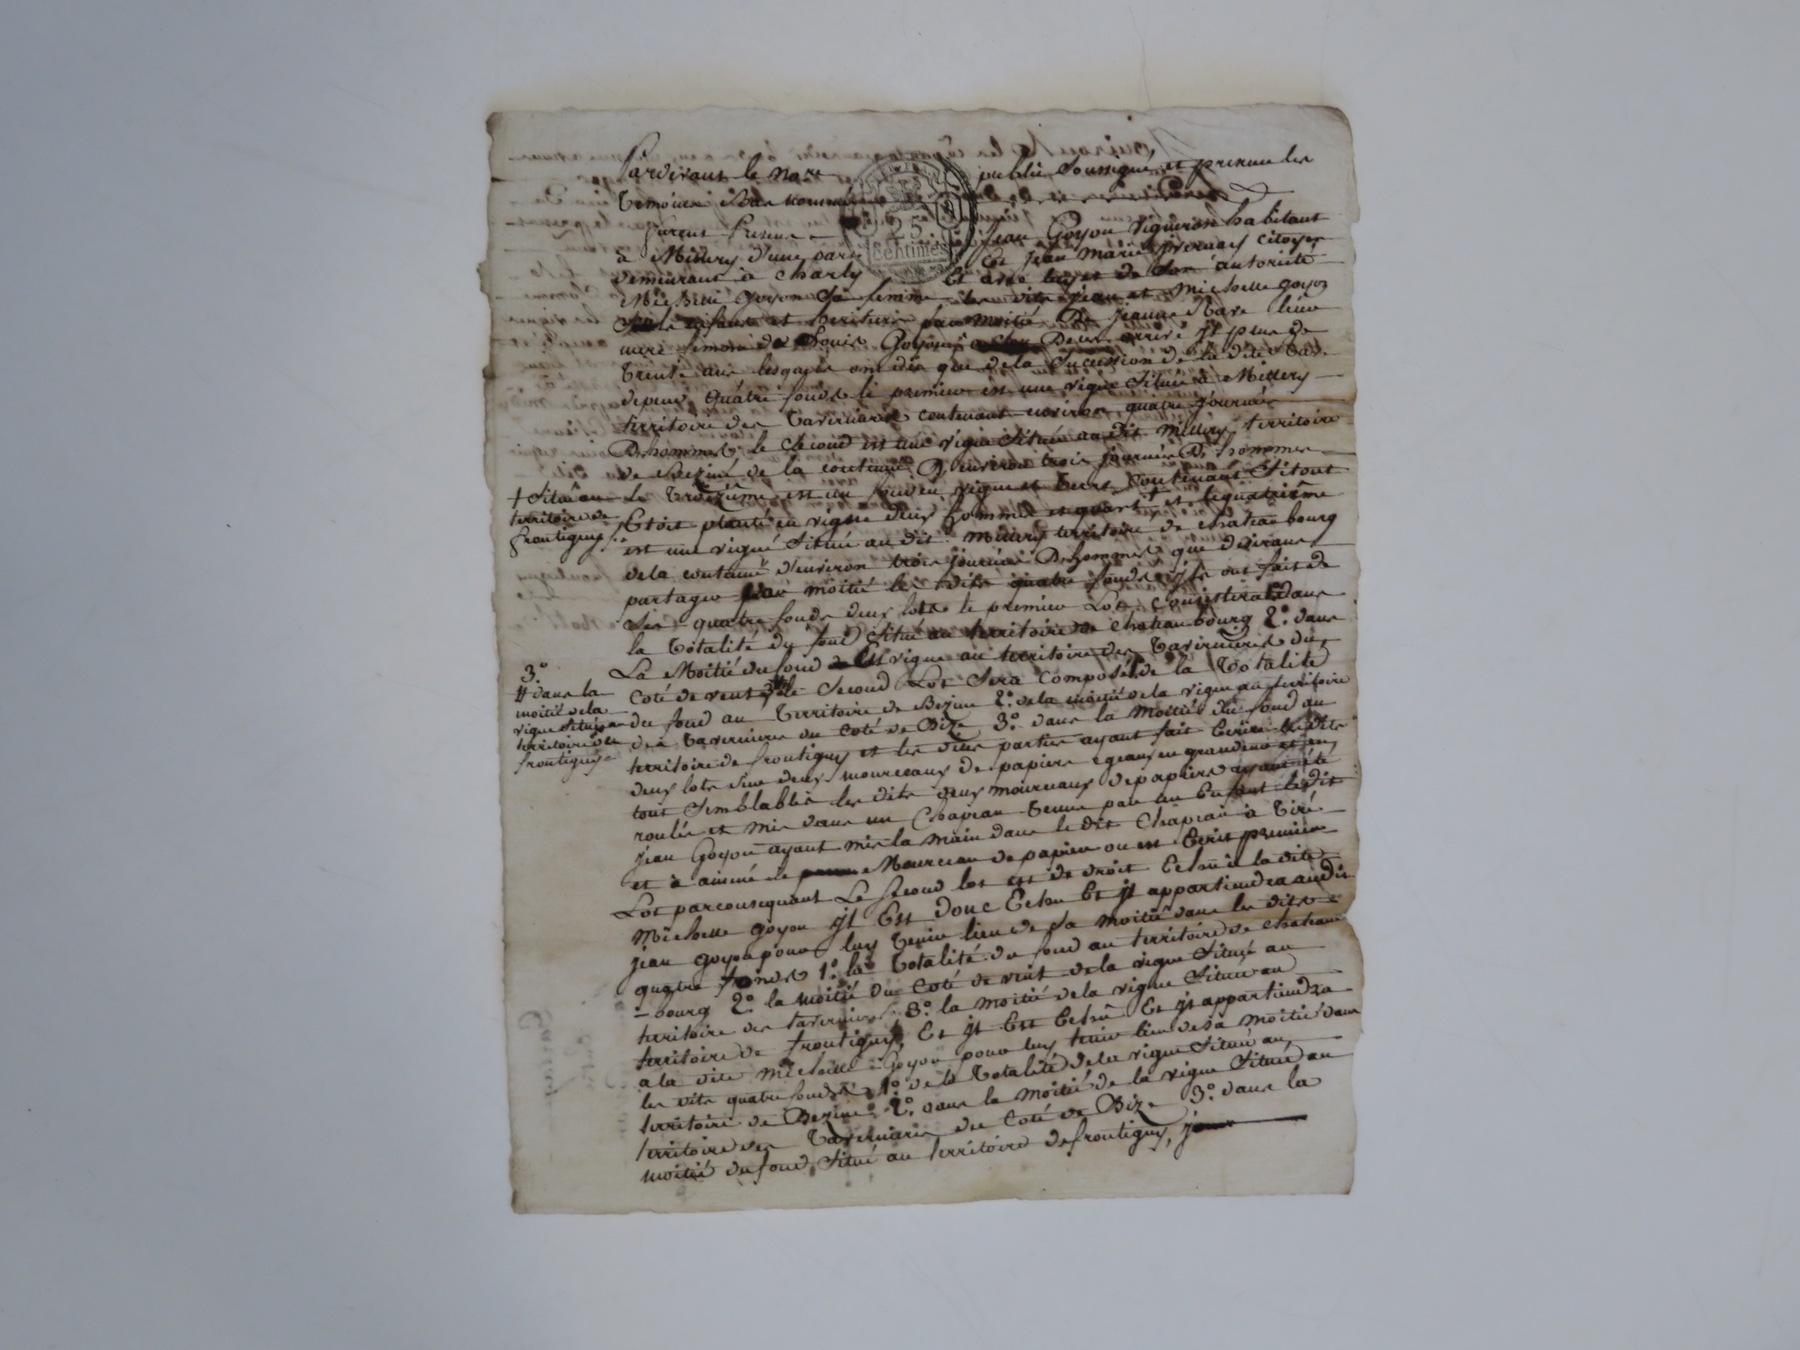 Pardevant le No.re public Soussigné, et presence les
témoins Bas nommés
furent Presens Jean Goyon Vigneron habitant
à Millery d'une part Et Jean Marie citoyen
demeurant à Charly Et de Son autorité
Michelle Goyon Sa femme les dits jean et Michelle Goyon
enfans et heritiers par moitié De Jeanne leur
mere femme de Louis Goyon Decedé jl plus de
trente ans lesquels ont dit que de la Sucession de la dite
depend quatre fonds le premier est une vigne Située à Millery
territoire des Taverniere contenant environ quatre journée
D'hommes le Second est une vigne Située au dit Millery territoire
de Bezine de la contenue D'environ trois journée D'hommes
+ Situé au
territoire de
frontigny
Le troizieme est un fond en vigne et terre, Contenant Sitout
Etoit planté en vigne deux hommée et quart + et le quatrième
est une vigne Située au dit Millery territoire de Chateaubourg
de la contenue d'environ trois journée D'hommes que desirans
partager par moitié les dits quatre fonds jls ont fait de
ces quatre fonds deux lots le premier Lot Consistera dans
la totalité du fond Situé au territoire de Chateaubourg 2.° dans
La Moitié du fond en vigne au territoire des Taverniere du
3.°
# dans la
moitié de la
vigne Située au
territoire de
frontigny
coté de vent # le Second Lot Sera Composé de la Totalité
du fond au territoire de Bezine 2.° de la moitié de la vigne au territoire
des Taverniere du coté de Bize 3.° dans la Moitié du fond au
territoire de frontigny et les deux parties ayant fait Ecrire les dits
deux lots Sur deux mourceaux de papiers egeaux en grandeur et en
tout Semblables les dits deux mourceaux de papiers ayant été
roulés et mis dans un Chapeau tenus par un Enfant le dit
jean Goyon ayant mis la main dans le dit Chapeau à tiré
et à amené le Mourceau de papier ou est Ecrit premier
Lot par consequant Le Second lot est de droit Echu à la dite
Michelle Goyon jl Est donc Echu Et jl appartiendra audit
jean Goyon pour luy tenir lieu de Sa moitié dans les dits
quatre fonds 1.° la totalité du fond au territoire de chateau
-bourg 2.° la moitié du Coté de vent de la vigne Située au
territoire des taverniere 3.° la moitié de la vigne Située au
territoire de frontigny, Et jl Est Echu Et jl appartiendra
a la dite Michelle Goyon pour luy tenir lieu de Sa moitié dans
les dits quatre fonds 1.° de la totalité de la vigne Située au
territoire de Bezine 2.° dans la moitié de la vigne Située au
territoire des Taverniere du Coté de Bize 3.° dans la
moitié du fond Situé au territoire de frontigny,
25
centimes